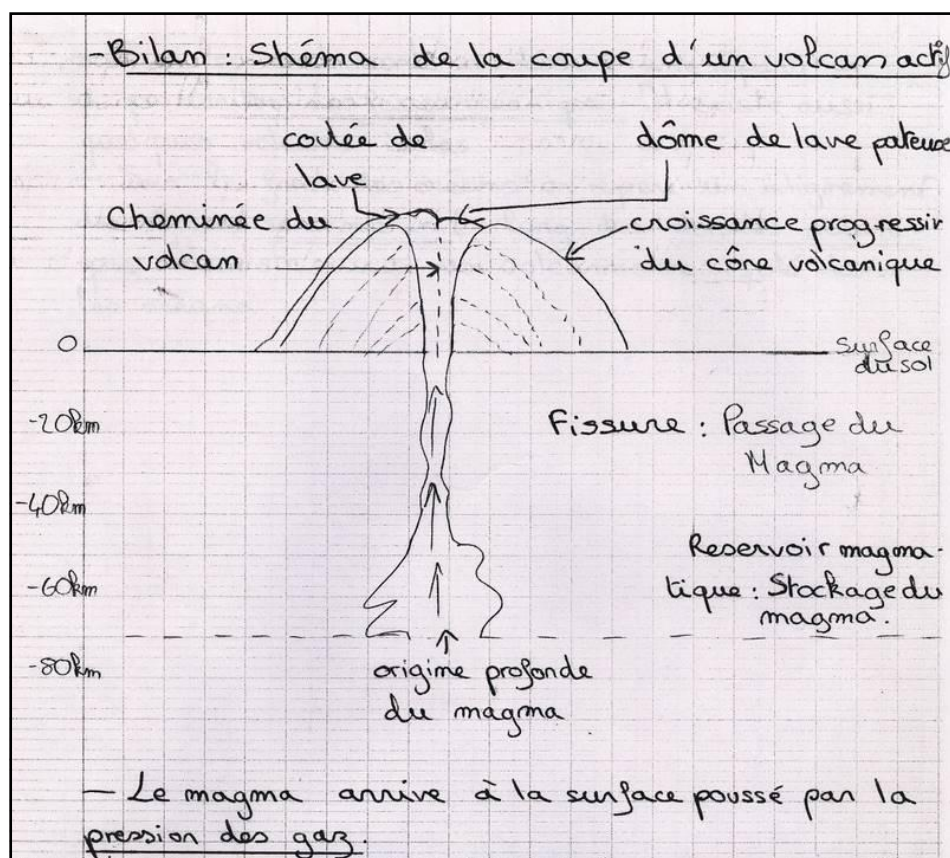 - Bilan : Shéma de la coupe d'un volcan actif
coulée de
lave
dôme de lave pateuse
Cheminée du
volcan
croissance progressiv
du cône volcanique
0
surface
du sol
-20km
Fissure : Passage du
Magma
-40km
Reservoir magma-
tique : Stockage du
magma.
-60km
-80km
origine profonde
du magma
— Le magma arrive à la surface poussé par la
pression des gaz.